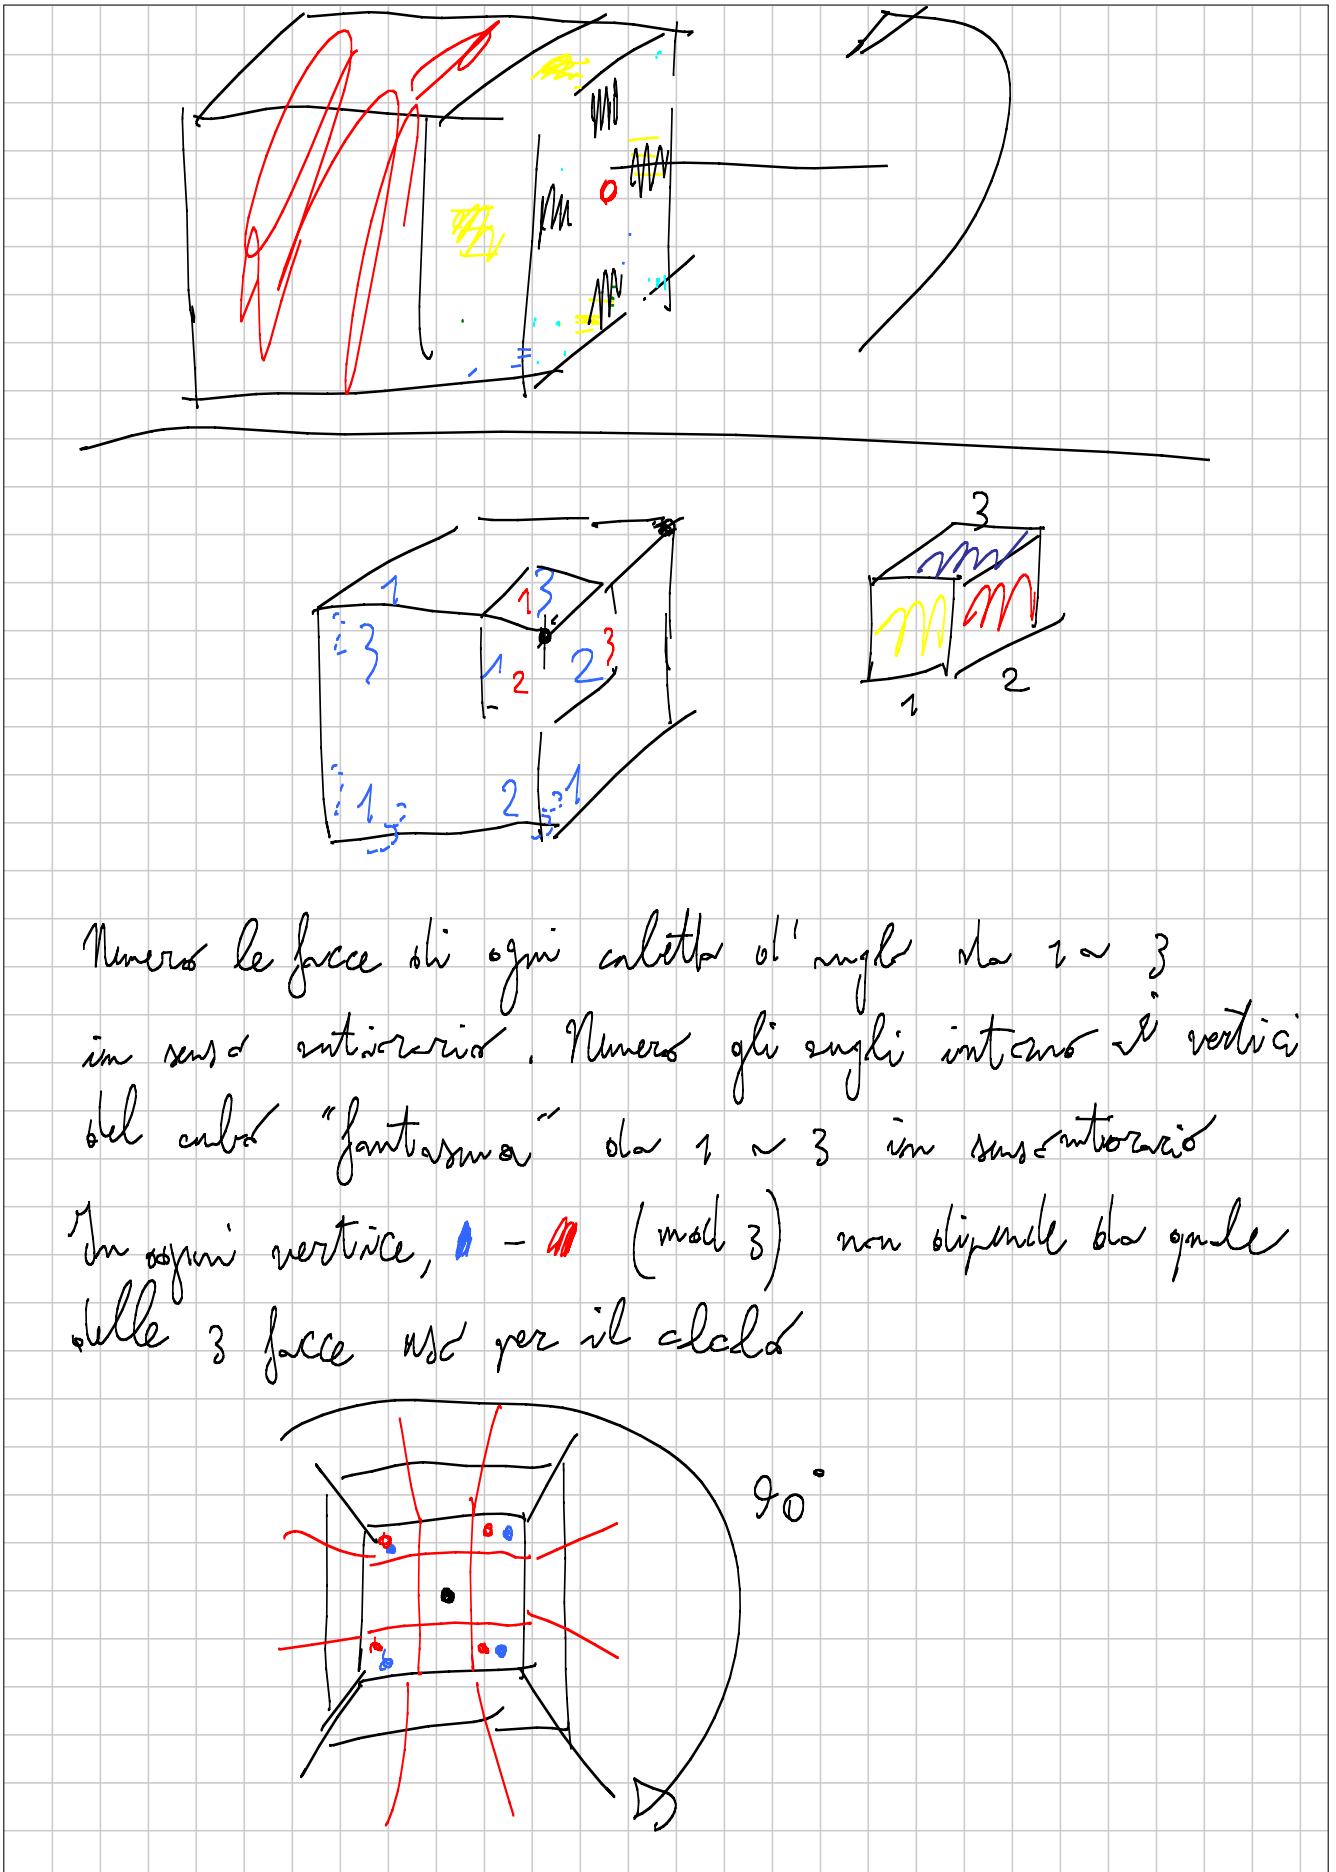 3
1 3 1 3
3 1 2 2
1 2
1 2 1
3 3
Numero le facce di ogni cubetto d'angolo da 1 a 3
in senso antiorario. Numero gli angoli intorno ai vertici
del cubo "fantasma" da 1 a 3 in senso antiorario
In ogni vertice, - (mod 3) non dipende da quale
delle 3 facce uso per il calcolo
90°